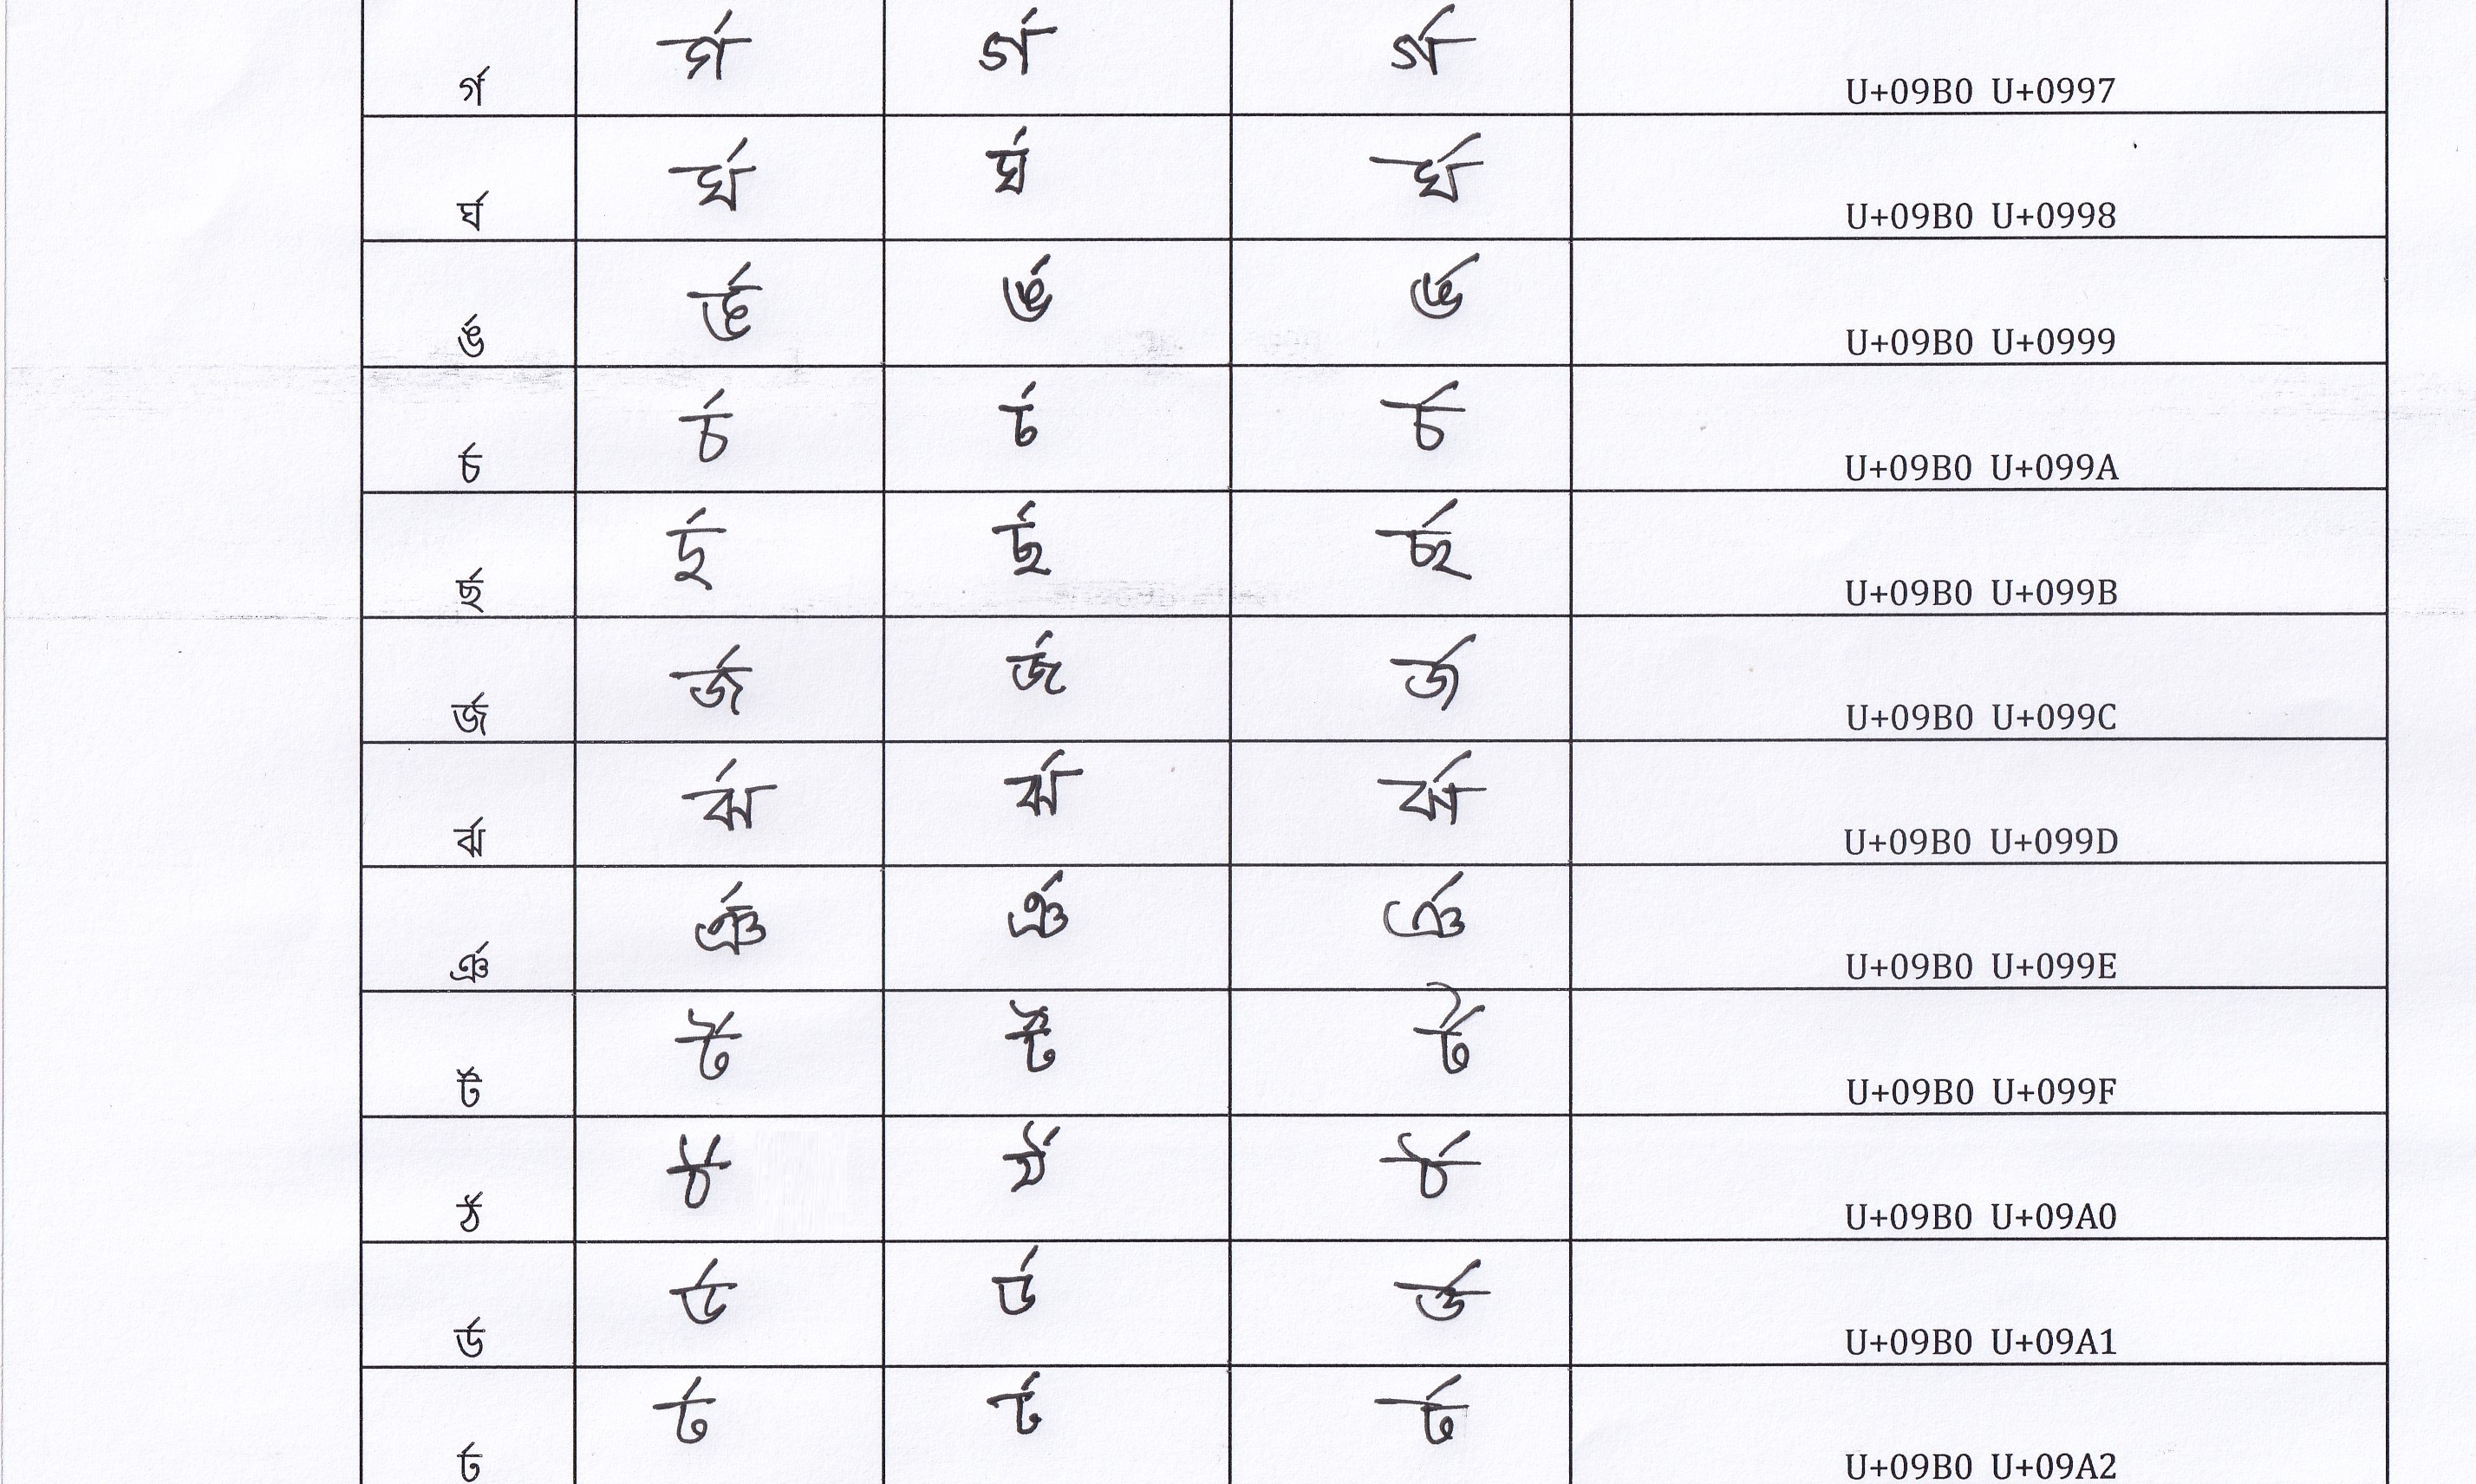 র্গ র্গ র্গ র্গ U+09B0 U+0997
র্ঘ র্ঘ র্ঘ র্ঘ U+09B0 U+0998
র্ঙ র্ঙ র্ঙ র্ঙ U+09B0 U+0999
র্চ র্চ র্চ র্চ U+09B0 U+099A
র্ছ র্ছ র্ছ র্ছ U+09B0 U+099B
র্জ র্জ র্জ র্জ U+09B0 U+099C
র্ঝ র্ঝ র্ঝ র্ঝ U+09B0 U+099D
র্ঞ র্ঞ র্ঞ র্ঞ U+09B0 U+099E
র্ট র্ট র্ট র্ট U+09B0 U+099F
র্ঠ র্ঠ র্ঠ র্ঠ U+09B0 U+09A0
র্ড র্ড র্ড র্ড U+09B0 U+09A1
র্ঢ র্ঢ র্ঢ র্ঢ U+09B0 U+09A2